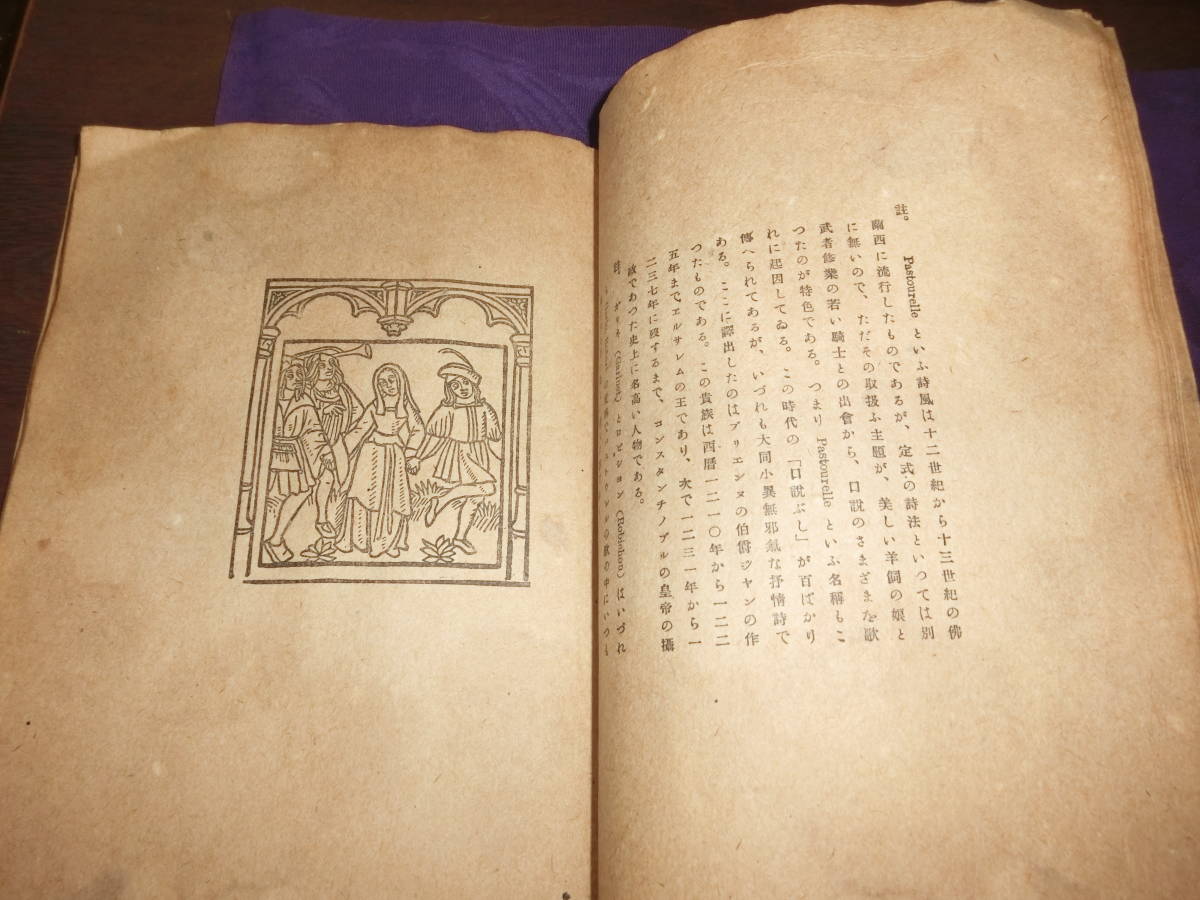 註。 Pastourelle といふ詩風は十二世紀から十三世紀の佛
蘭西に流行したものであるが、定式の詩法といつては別
に無いので、ただその取扱ふ主題が、美しい羊飼の娘と
武者修業の若い騎士との出會から、口説のさまざまを歌
つたのが特色である。つまり Pastourelle といふ名稱もこ
れに起因してゐる。この時代の「口說ぶし」が百ばかり
傳へられてあるが、いづれも大同小異無邪氣な抒情詩で
ある。ここに譯出したのはブリエンヌの伯爵ジャンの作
つたものである。この貴族は西曆一二一〇年から一二二
五年までエルサレムの王であり、次で一二三一年から一
二三七年に歿するまで、コンスタンチノブルの皇帝の攝
政であつた史上に名高い人物である。
ガリネ (Garinet) とロビション (Robichon) はいづれ
の歌の中にいつも